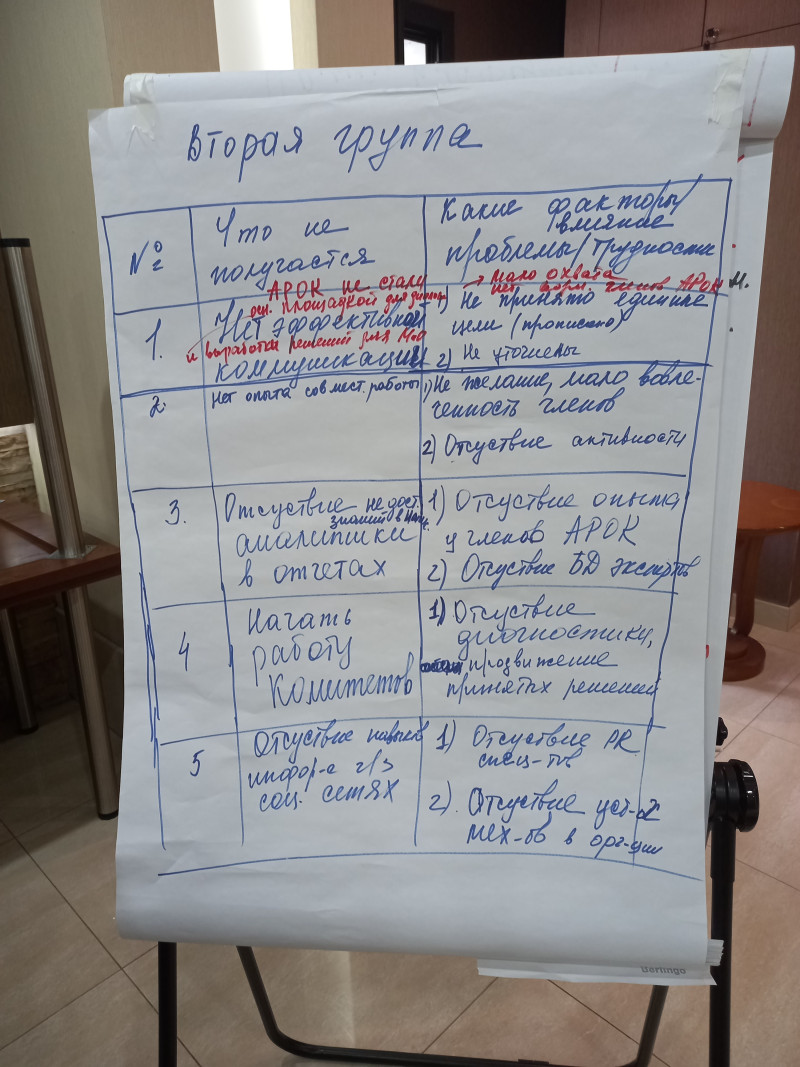 Вторая группа
№
Что не
получается
Какие факторы/
влияние
проблемы/трудности
1.
АРОК не стали
площадкой для
Нет эффективной
и выработки решений для
коммуникации
→ мало охвата
нет членов АРОК
1) Не принято единые
цели (прописано)
2) Не уточнены
2.
Нет опыта совмест. работы
1) Не желание, мало вовле-
ченность членов
2) Отсуствие активности
3.
Отсуствие недост.
знаний в
аналитики
в отчетах
1) Отсуствие опыта
у членов АРОК
2) Отсуствие БД экспертов
4
Начать
работу
Комитетов
1) Отсуствие
диогностики,
продвижение
принятых решений
5
Отсуствие навыков
инфор-е ч/з
соц. сетях
1) Отсуствие PR
спец-тов
2). Отсуствие уст-х
мех-ов в орг-ции
Berlingo